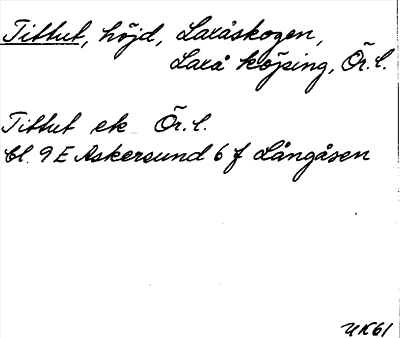 Tittut, höjd, Laxåskogen,
Laxå köping, Ör. l.
Tittut ek Ör. l.
bl. 9 E Askersund 6 f Långåsen
UK61